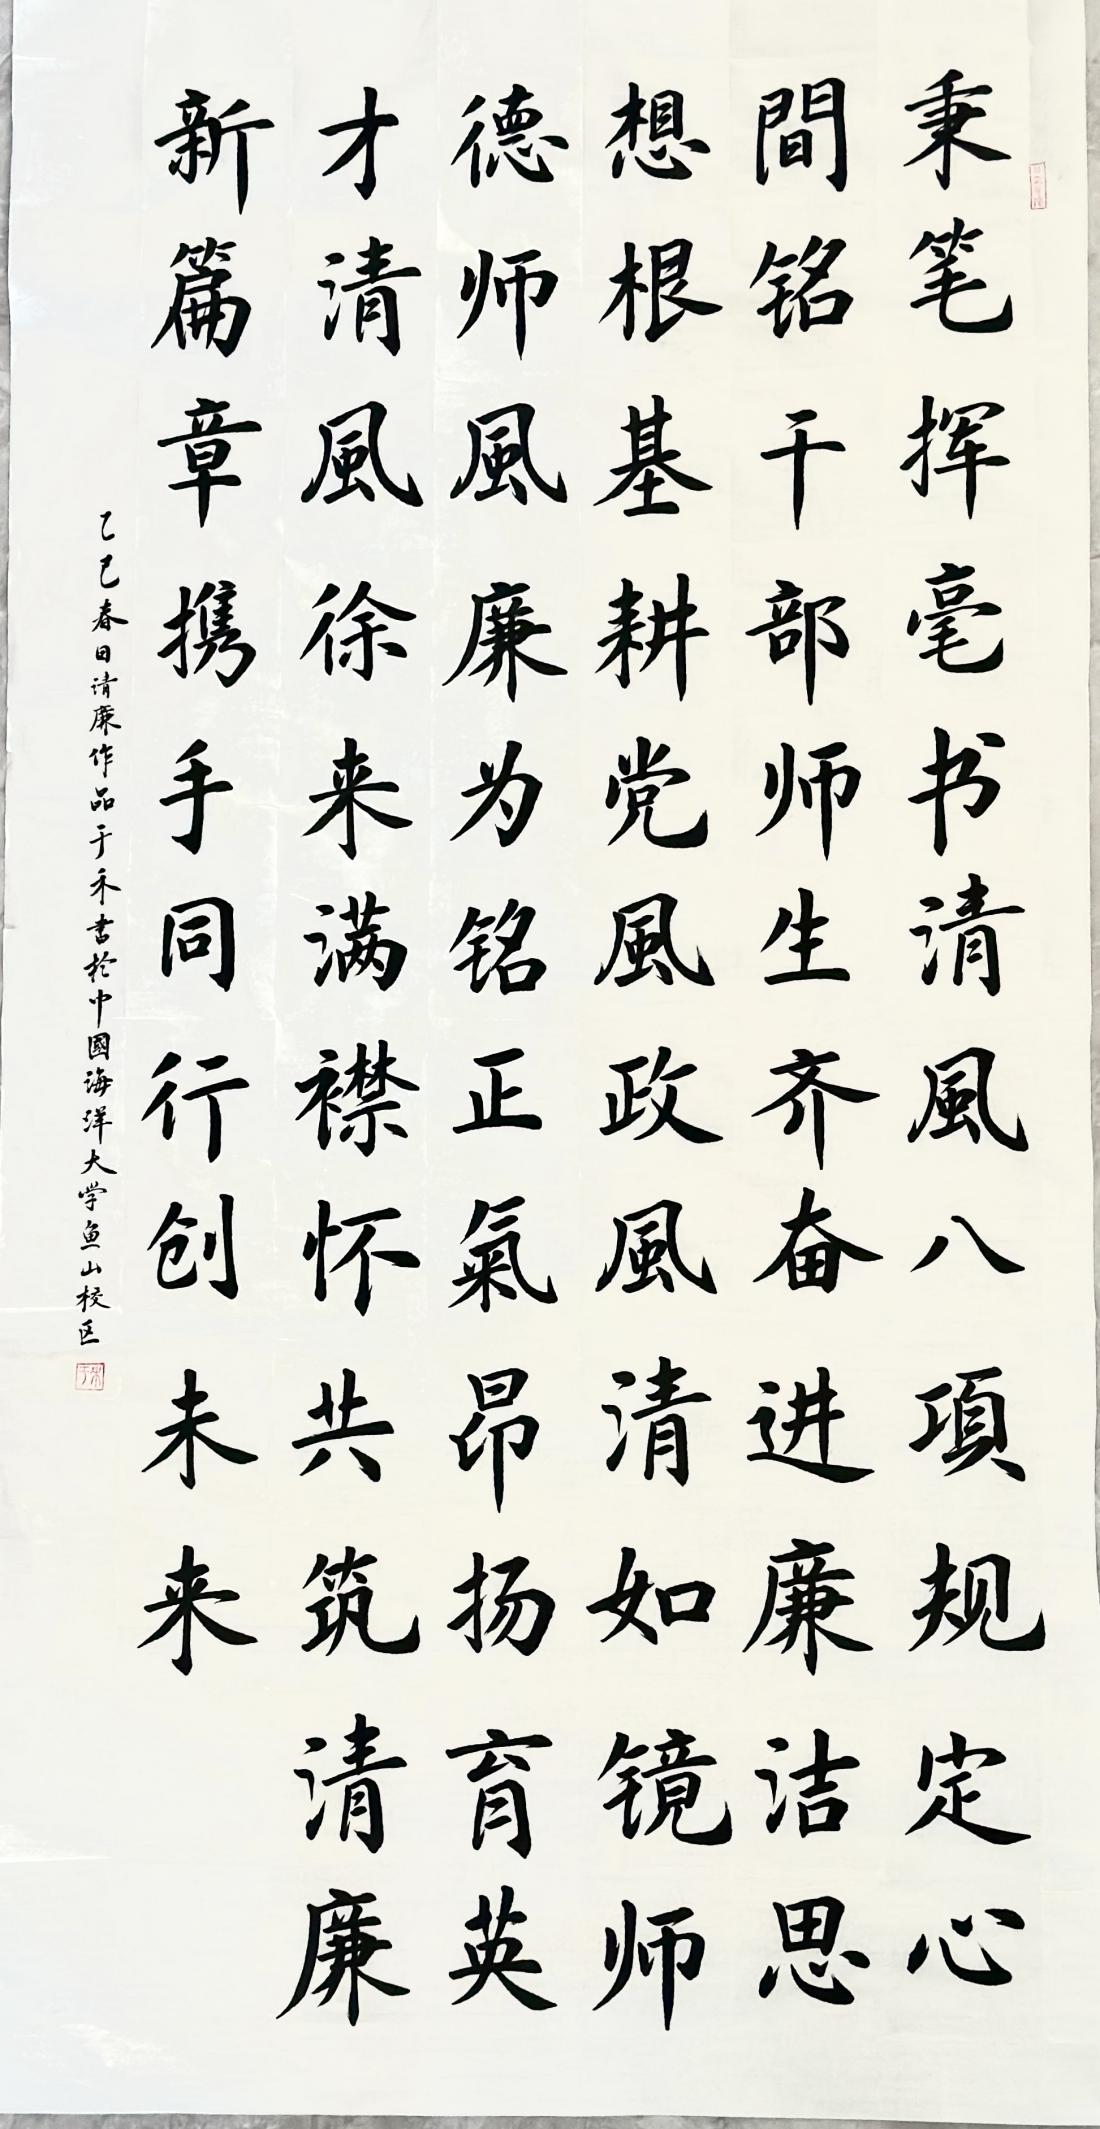 秉笔挥毫书清風八項规定心
間铭干部师生齐奋进廉洁思
想根基耕党風政風清如镜师
德师風廉为铭正氣昂扬育英
才清風徐来满襟怀共筑清廉
新篇章携手同行创未来
乙巳春日请廉作品于禾書於中國海洋大学鱼山校区